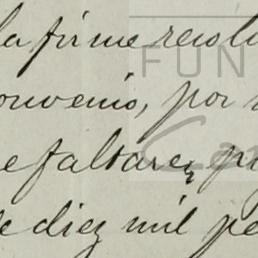 la firme resolu
onvenio, por
e faltare, p
de diez mil pe
FUN